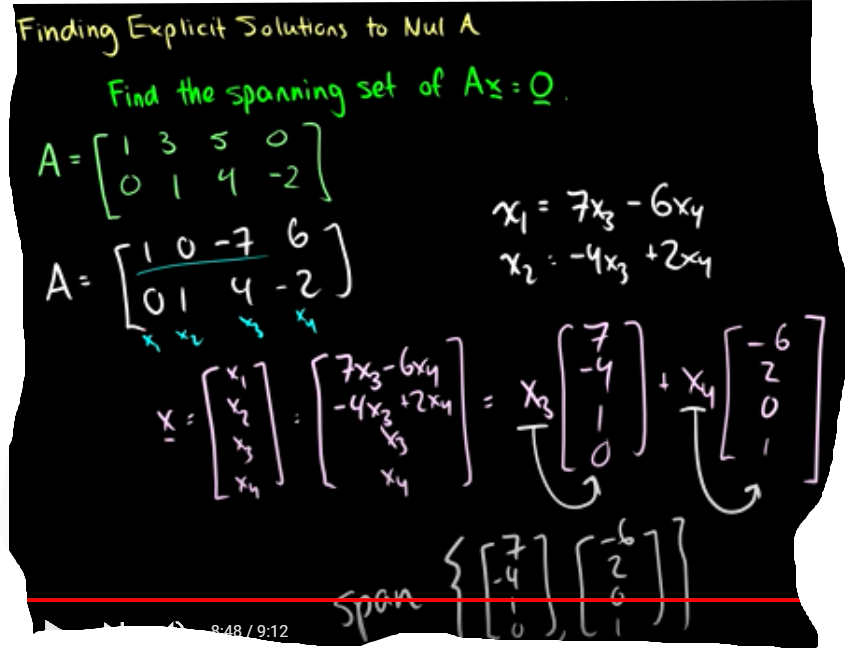 Finding Explicit Solutions to Nul A
Find the spanning set of Ax = 0.
A = [ 1 3 5 0
0 1 4 -2 ]
A = [ 1 0 -7 6
0 1 4 -2 ]
x₁ x₂ x₃ x₄
x₁ = 7x₃ - 6x₄
x₂ = -4x₃ + 2x₄
x = [ x₁ x₂ x₃ x₄ ] = [ 7x₃ - 6x₄ -4x₃ + 2x₄ x₃ x₄ ] = x₃ [ 7 -4 1 0 ] + x₄ [ -6 2 0 1 ]
span { [ 7 -4 1 0 ], [ -6 2 0 1 ] }
8:48 / 9:12